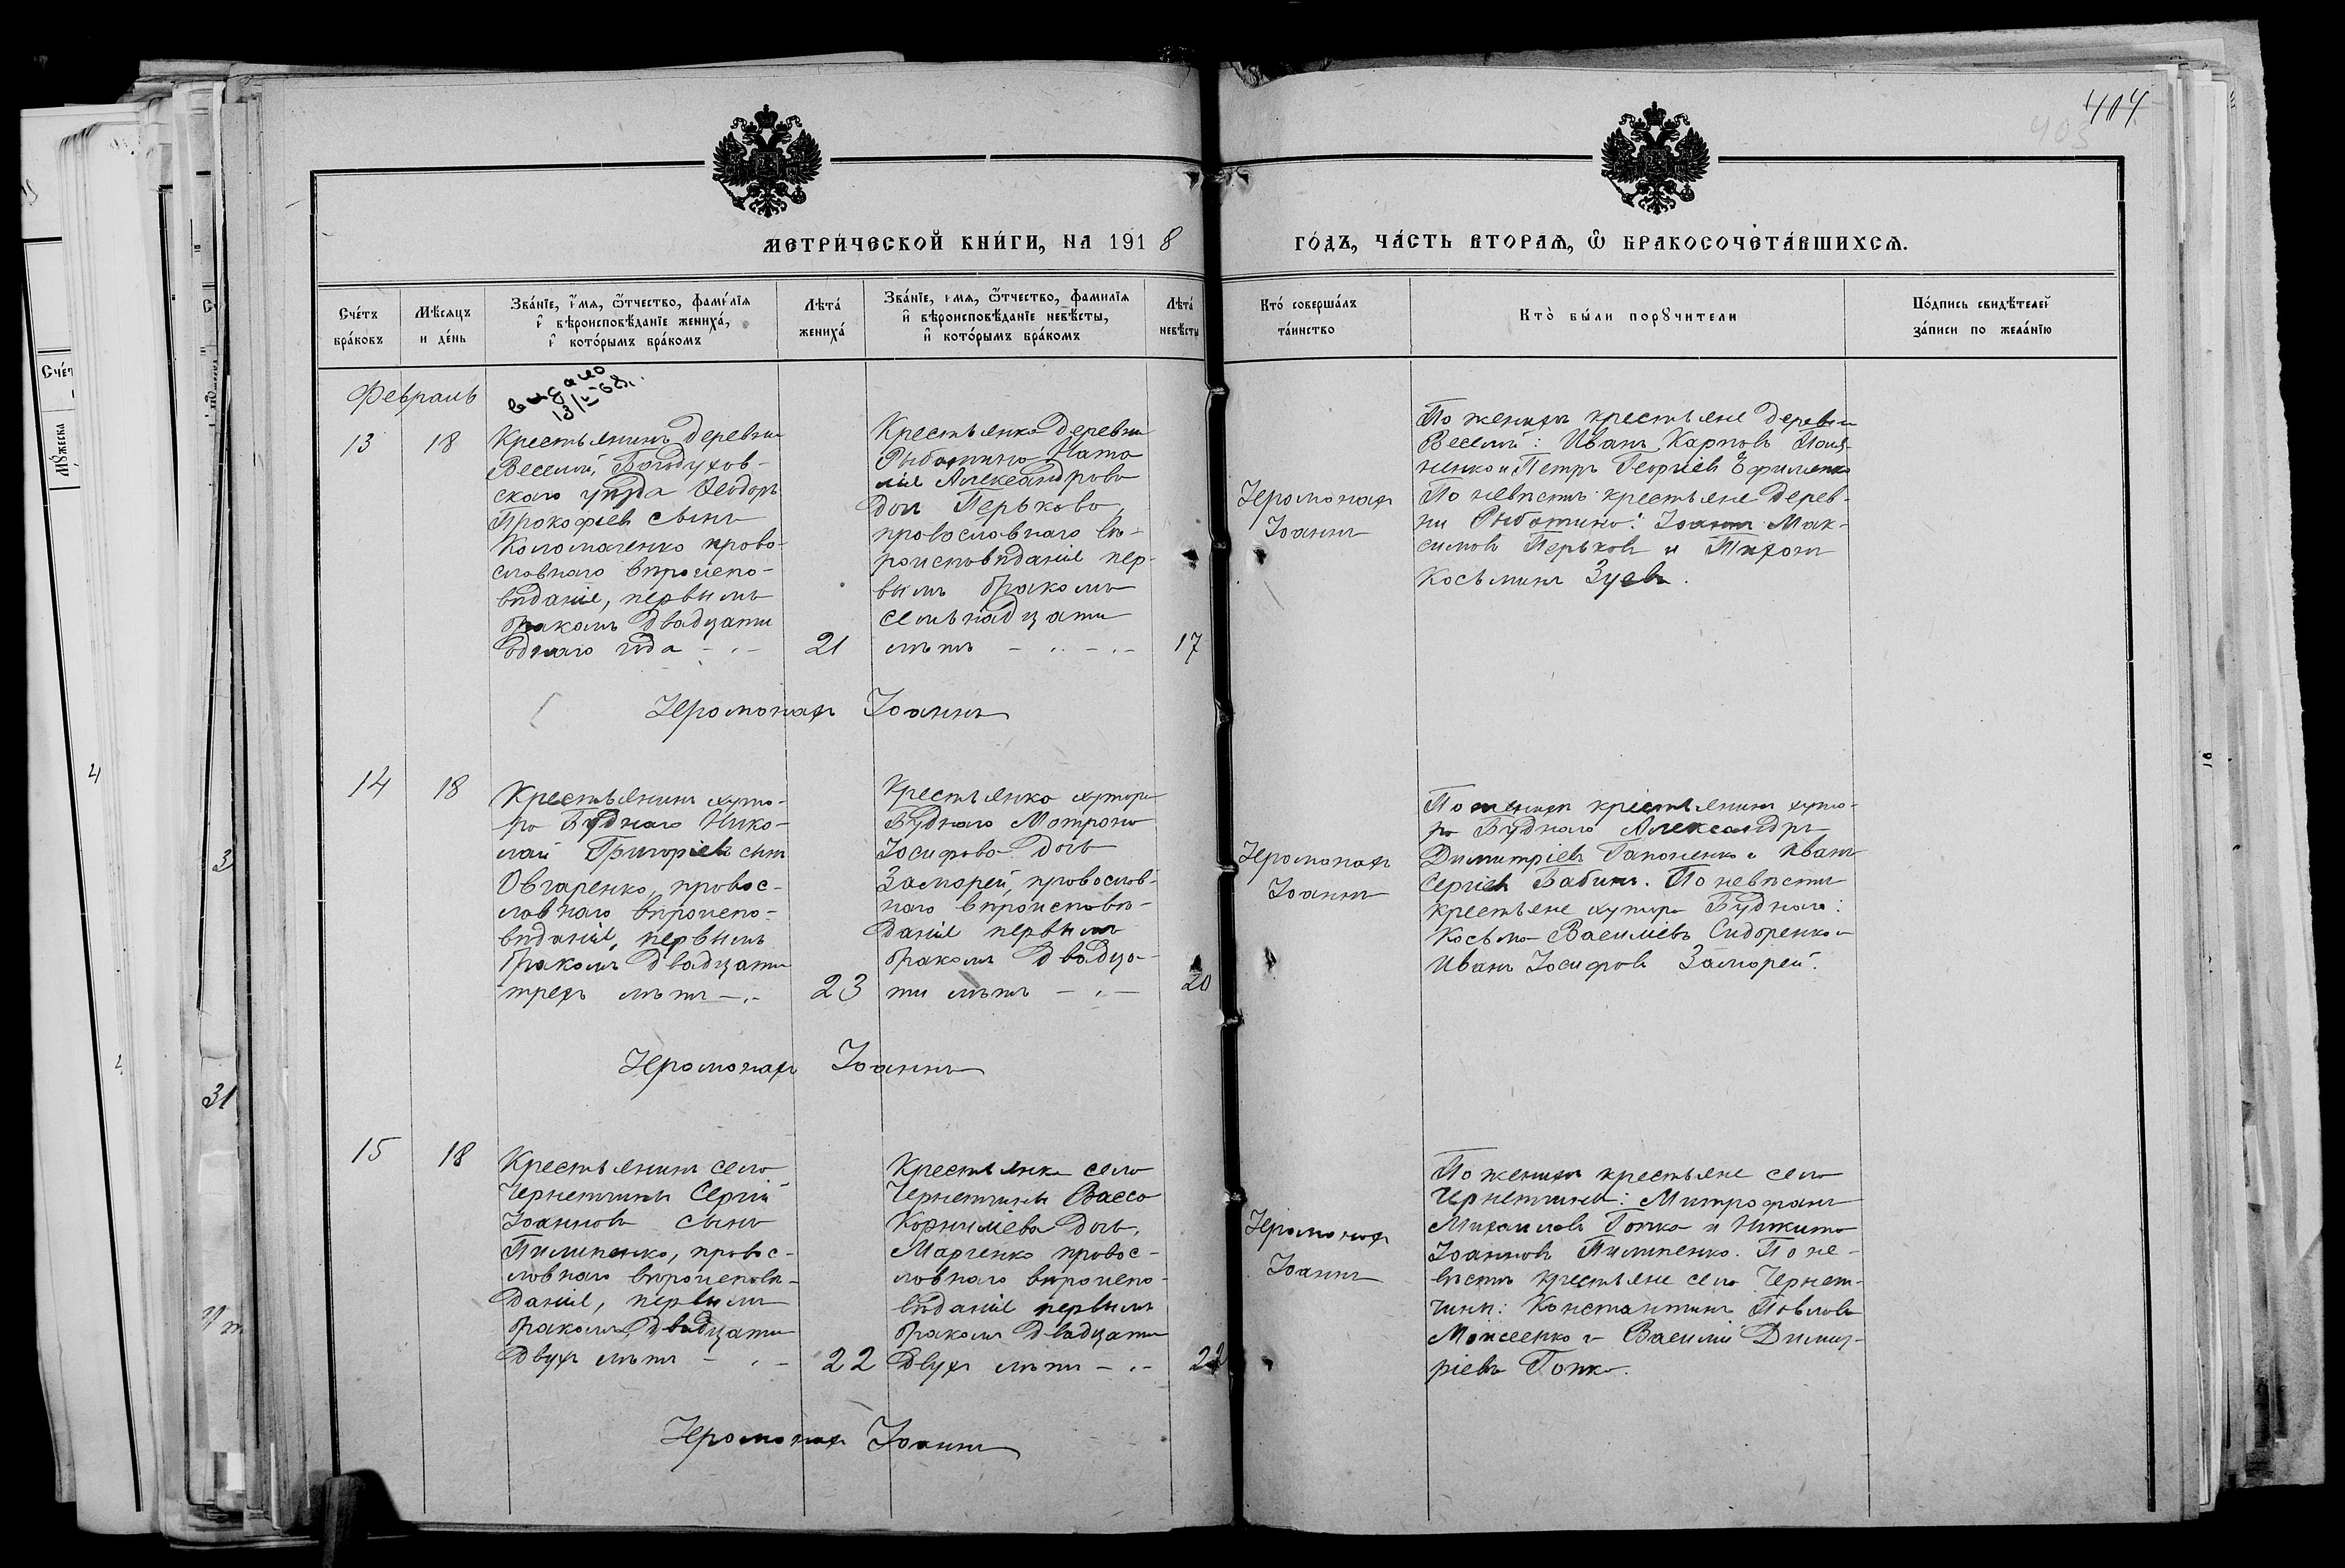 414
403
МЕТРИ́ЧЕСКОЙ КНИ́ГИ, НА 1918
ГО́ДЪ, ЧА́СТЬ ВТОРАѦ, Ѿ БРАКОСОЧЕТА́ВШИХСѦ.
Сче́тъ
бра́ковъ
Мѣ́сяцъ
и де́нь
Зва́нїе, и҆́мя, ѻ҆́тчество, фами́лїя
и҆ вѣроисповѣ́данїе жениха́,
и҆ кото́рымъ бра́комъ
Лѣта́
жениха́
Зва́нїе, и҆́мя, ѻ҆́тчество, фамилїя
и҆ вѣроисповѣ́данїе невѣ́сты,
и҆ кото́рымъ бра́комъ
Лѣта́
невѣ́сты
Кто́ соверша́лъ
та́инство
Кто̀ бы́ли порꙋчители
По́дпись свидѣ́телей
за́писи по жела́нїю
Февраль
видано
13/V-68г.
13
18
Крестьянинъ деревни
Веселой, Богодухов-
скаго уѣзда Ѳеодоръ
Прокофьевъ сынъ
Коломаченко право-
славнаго вѣроиспо-
вѣданія, первымъ
бракомъ двадцати
однаго года
21
Крестьянка деревни
Рыботина Ната
лія Александрова
дочь Перькова,
православнаго вѣ-
роисповѣданія пер-
вымъ бракомъ
семьнадцати
лѣтъ
17
Іеромонахъ
Іоаннъ
По женихѣ крестьяне деревни
Веселой: Иванъ Карповъ
ненко и Петръ Георгіевъ Ефименко
По невѣстѣ крестьяне дерев-
ни Рыботина: Іоаннъ Мак-
симовъ Перьковъ и Тихонъ
Косьминъ Зуевъ.
Іеромонахъ Іоаннъ
14
18
Крестьянинъ хуто-
ра Буднаго Нико-
лай Григорьевъ сынъ
Овчаренко, правос-
лавнаго вѣроиспо-
вѣданія, первымъ
бракомъ двадцати
трехъ лѣтъ
23
Крестьянка хутора
Буднаго Матрона
Іосифова дочь
Заморей, православ-
наго вѣроисповѣ-
данія первымъ
бракомъ двадца-
ти лѣтъ
20
Іеромонахъ
Іоаннъ
По женихѣ крестьянинъ хуто-
ра Буднаго Александръ
Димитріевъ Гапоненко и Иванъ
Сергіевъ Бабинъ. По невѣстѣ
крестьяне хутора Буднаго:
Косьма Василіевъ Сидоренко и
Иванъ Іосифовъ Заморей.
Іеромонахъ Іоаннъ
15
18
Крестьянинъ села
Чернетчины Сергій
Іоанновъ сынъ
Пилипенко, правос-
лавнаго вѣроисповѣ-
данія, первымъ
бракомъ двадцати
двухъ лѣтъ
22
Крестьянка села
Чернетчины Васса
Корниліева дочь,
Марченко правос-
лавнаго вѣроиспо-
вѣданія первымъ
бракомъ двадцати
двухъ лѣтъ
22
Іеромонахъ
Іоаннъ
По женихѣ крестьяне села
Чернетчины: Митрофанъ
Михаиловъ Гопка и Никита
Іоанновъ Пилипенко. По не-
вѣстѣ крестьяне села Чернет-
чины: Константинъ Павловъ
Моисеенко и Василій Димит-
ріевъ Гопка.
Іеромонахъ Іоаннъ